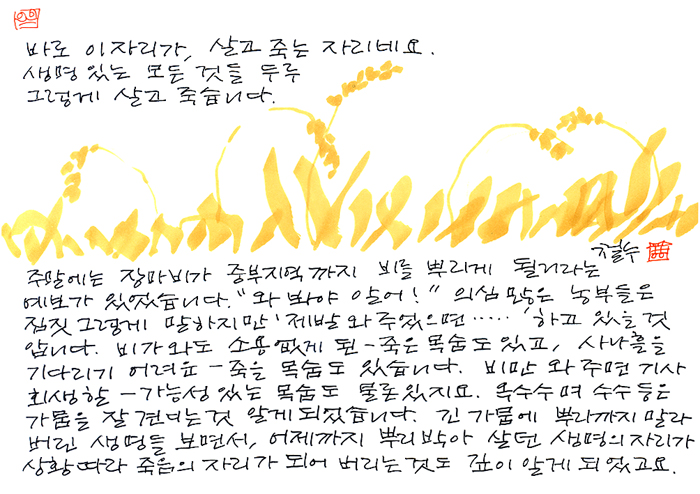 바로 이 자리가, 살고 죽는 자리네요.
생명 있는 모든 것들 두루
그렇게 살고 죽습니다.
철수
주말에는 장마비가 중부지역까지 비를 뿌리게 될거라는
예보가 있었습니다. "와 봐야 알어!" 의심 많은 농부들은
짐짓 그렇게 말하지만 '제발 와 주었으면·····' 하고 있을 것
입니다. 비가 와도 소용없게 된-죽은 목숨도 있고, 사나흘을
기다리기 어려운-죽을 목숨도 있습니다. 비만 와 주면 기사
회생할-가능성 있는 목숨도 물론 있지요. 옥수수며 수수 등은
가뭄을 잘 견디는 것 알게 되었습니다. 긴 가뭄에 뿌리까지 말라
버린 생명들 보면서, 어제까지 뿌리박아 살던 생명의 자리가
상황따라 죽음의 자리가 되어 버리는 것도 깊이 알게 되었고요.